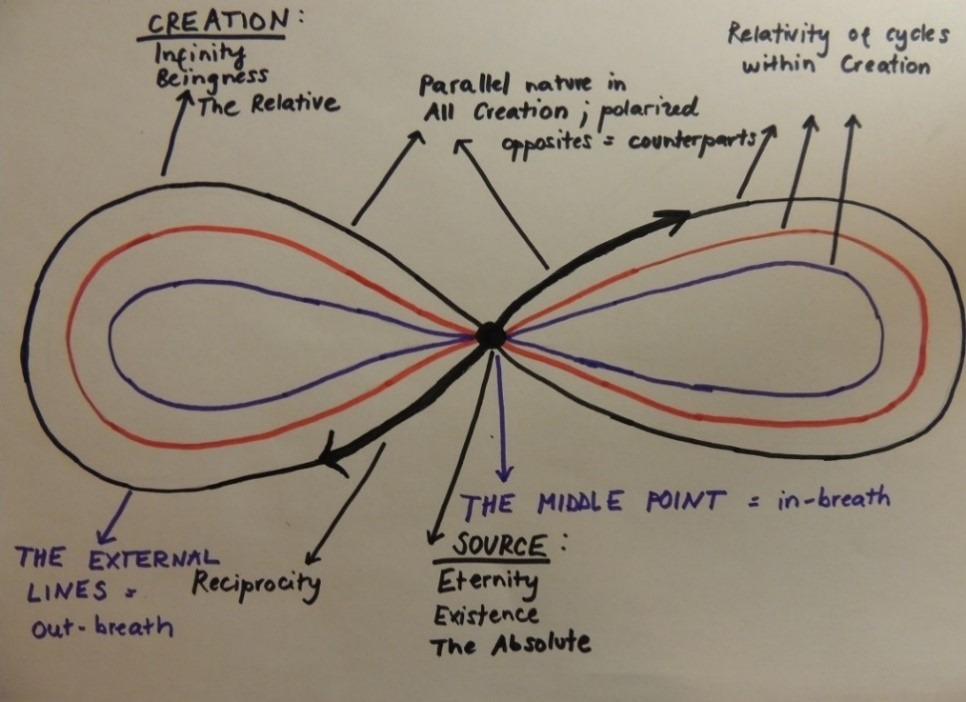 CREATION:
Infinity
Beingness
The Relative
Parallel nature in
All Creation ; polarized
opposites = counterparts
Relativity of cycles
within Creation
THE EXTERNAL
LINES =
out-breath
Reciprocity
THE MIDDLE POINT = in-breath
SOURCE:
Eternity
Existence
The Absolute